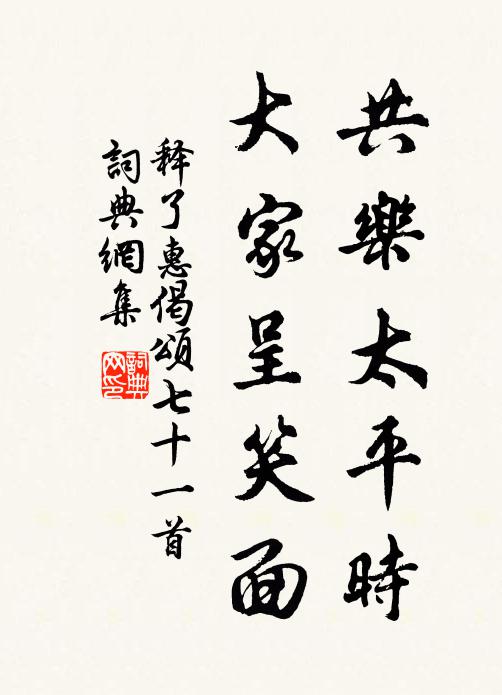 共樂太平時
大家呈笑面
释了惠偈頌七十一首
詞典網集
詞典
网印